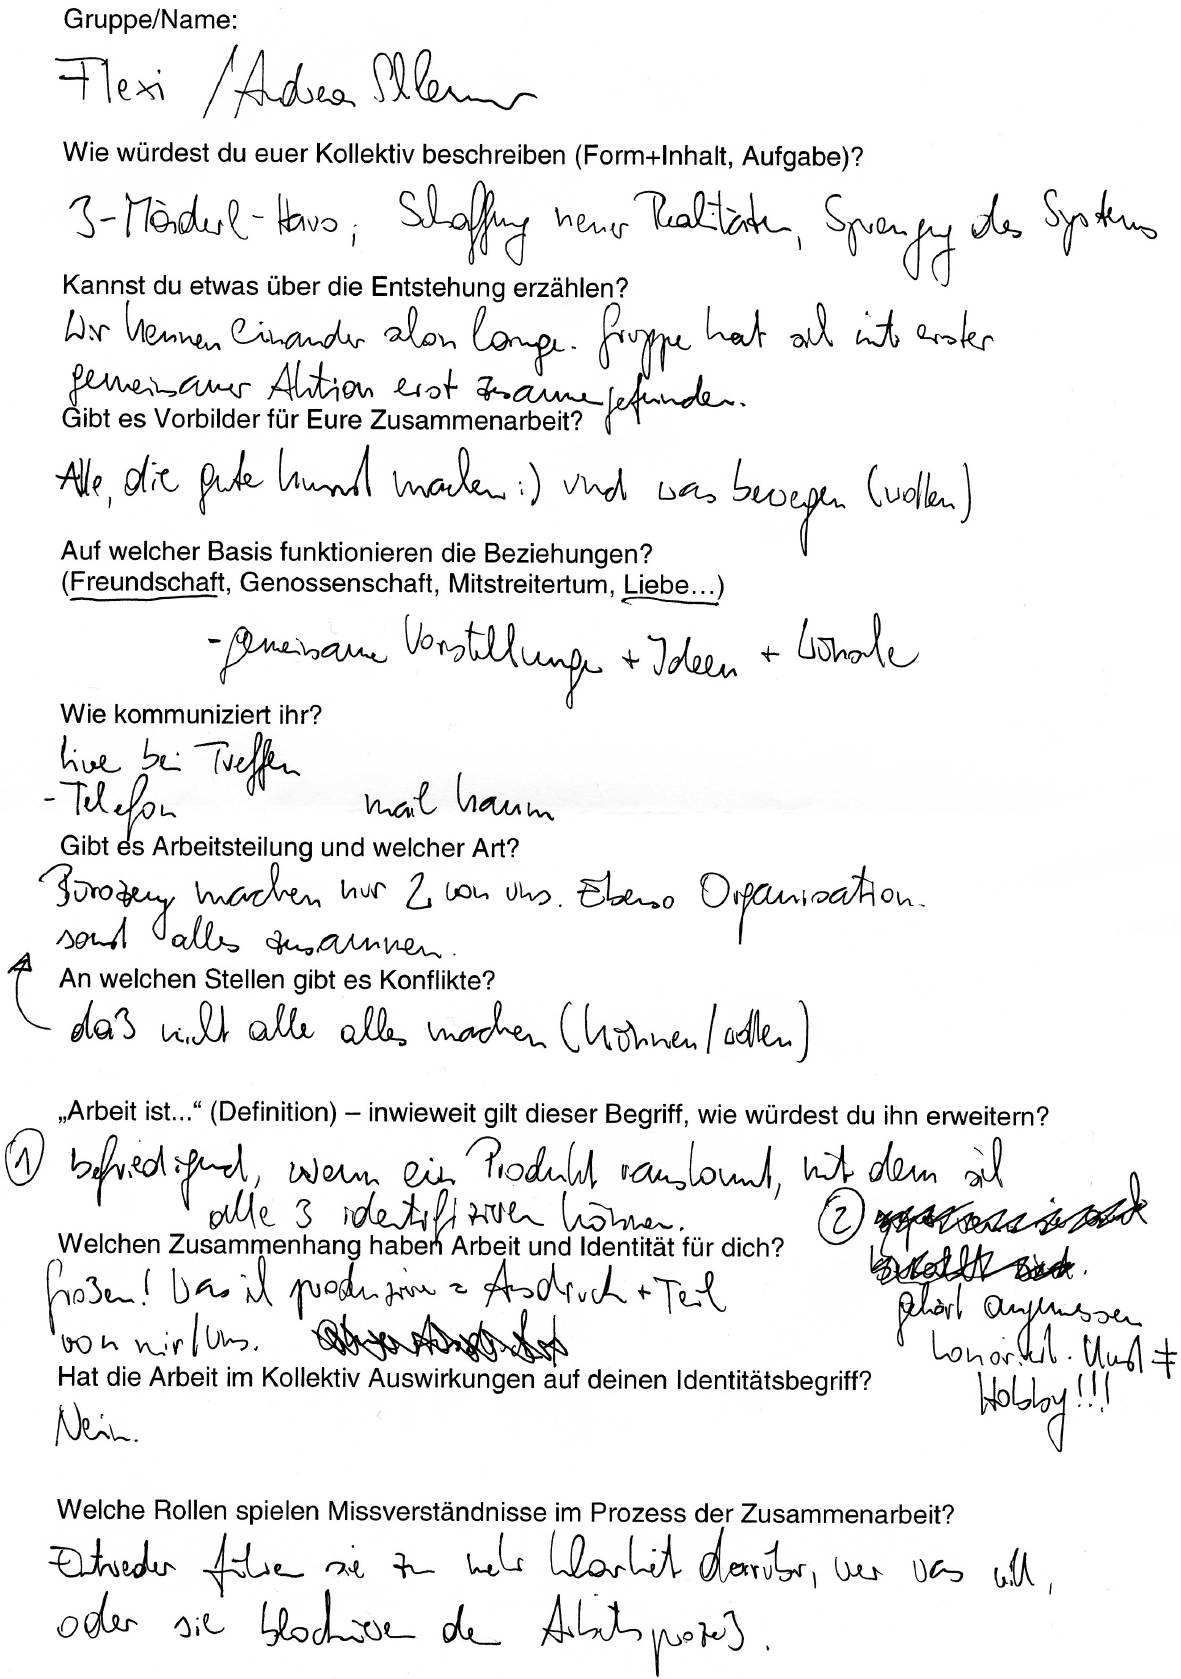 Gruppe/Name:
Flexi / Andrea
Wie würdest du euer Kollektiv beschreiben (Form+Inhalt, Aufgabe)?
3-Mäderl-Haus; Schaffung neuer Realitäten, Sprengung des Systems
Kannst du etwas über die Entstehung erzählen?
Wir kennen einander schon lange. Gruppe hat sich mit erster
gemeinsamer Aktion erst zusammengefunden.
Gibt es Vorbilder für Eure Zusammenarbeit?
Alle, die gute Kunst machen :) und was bewegen (wollen)
Auf welcher Basis funktionieren die Beziehungen?
(Freundschaft, Genossenschaft, Mitstreitertum, Liebe...)
- gemeinsame Vorstellungen + Ideen + Wünsche
Wie kommuniziert ihr?
live bei Treffen
- Telefon mail kaum
Gibt es Arbeitsteilung und welcher Art?
Bürozeug machen nur 2 von uns. Ebenso Organisation.
sonst alles zusammen.
An welchen Stellen gibt es Konflikte?
daß nicht alle alles machen (können/wollen)
„Arbeit ist...“ (Definition) – inwieweit gilt dieser Begriff, wie würdest du ihn erweitern?
① befriedigend, wenn ein Produkt rauskommt, mit dem sich
alle 3 identifizieren können.
②
gehört angemessen
honoriert. Kunst ≠
Hobby!!!
Welchen Zusammenhang haben Arbeit und Identität für dich?
Großen! Was ich produziere = Ausdruck + Teil
von mir/uns.
Hat die Arbeit im Kollektiv Auswirkungen auf deinen Identitätsbegriff?
Nein.
Welche Rollen spielen Missverständnisse im Prozess der Zusammenarbeit?
Entweder führen sie zu mehr Klarheit darüber, wer was will,
oder sie blockieren den Arbeitsprozeß.